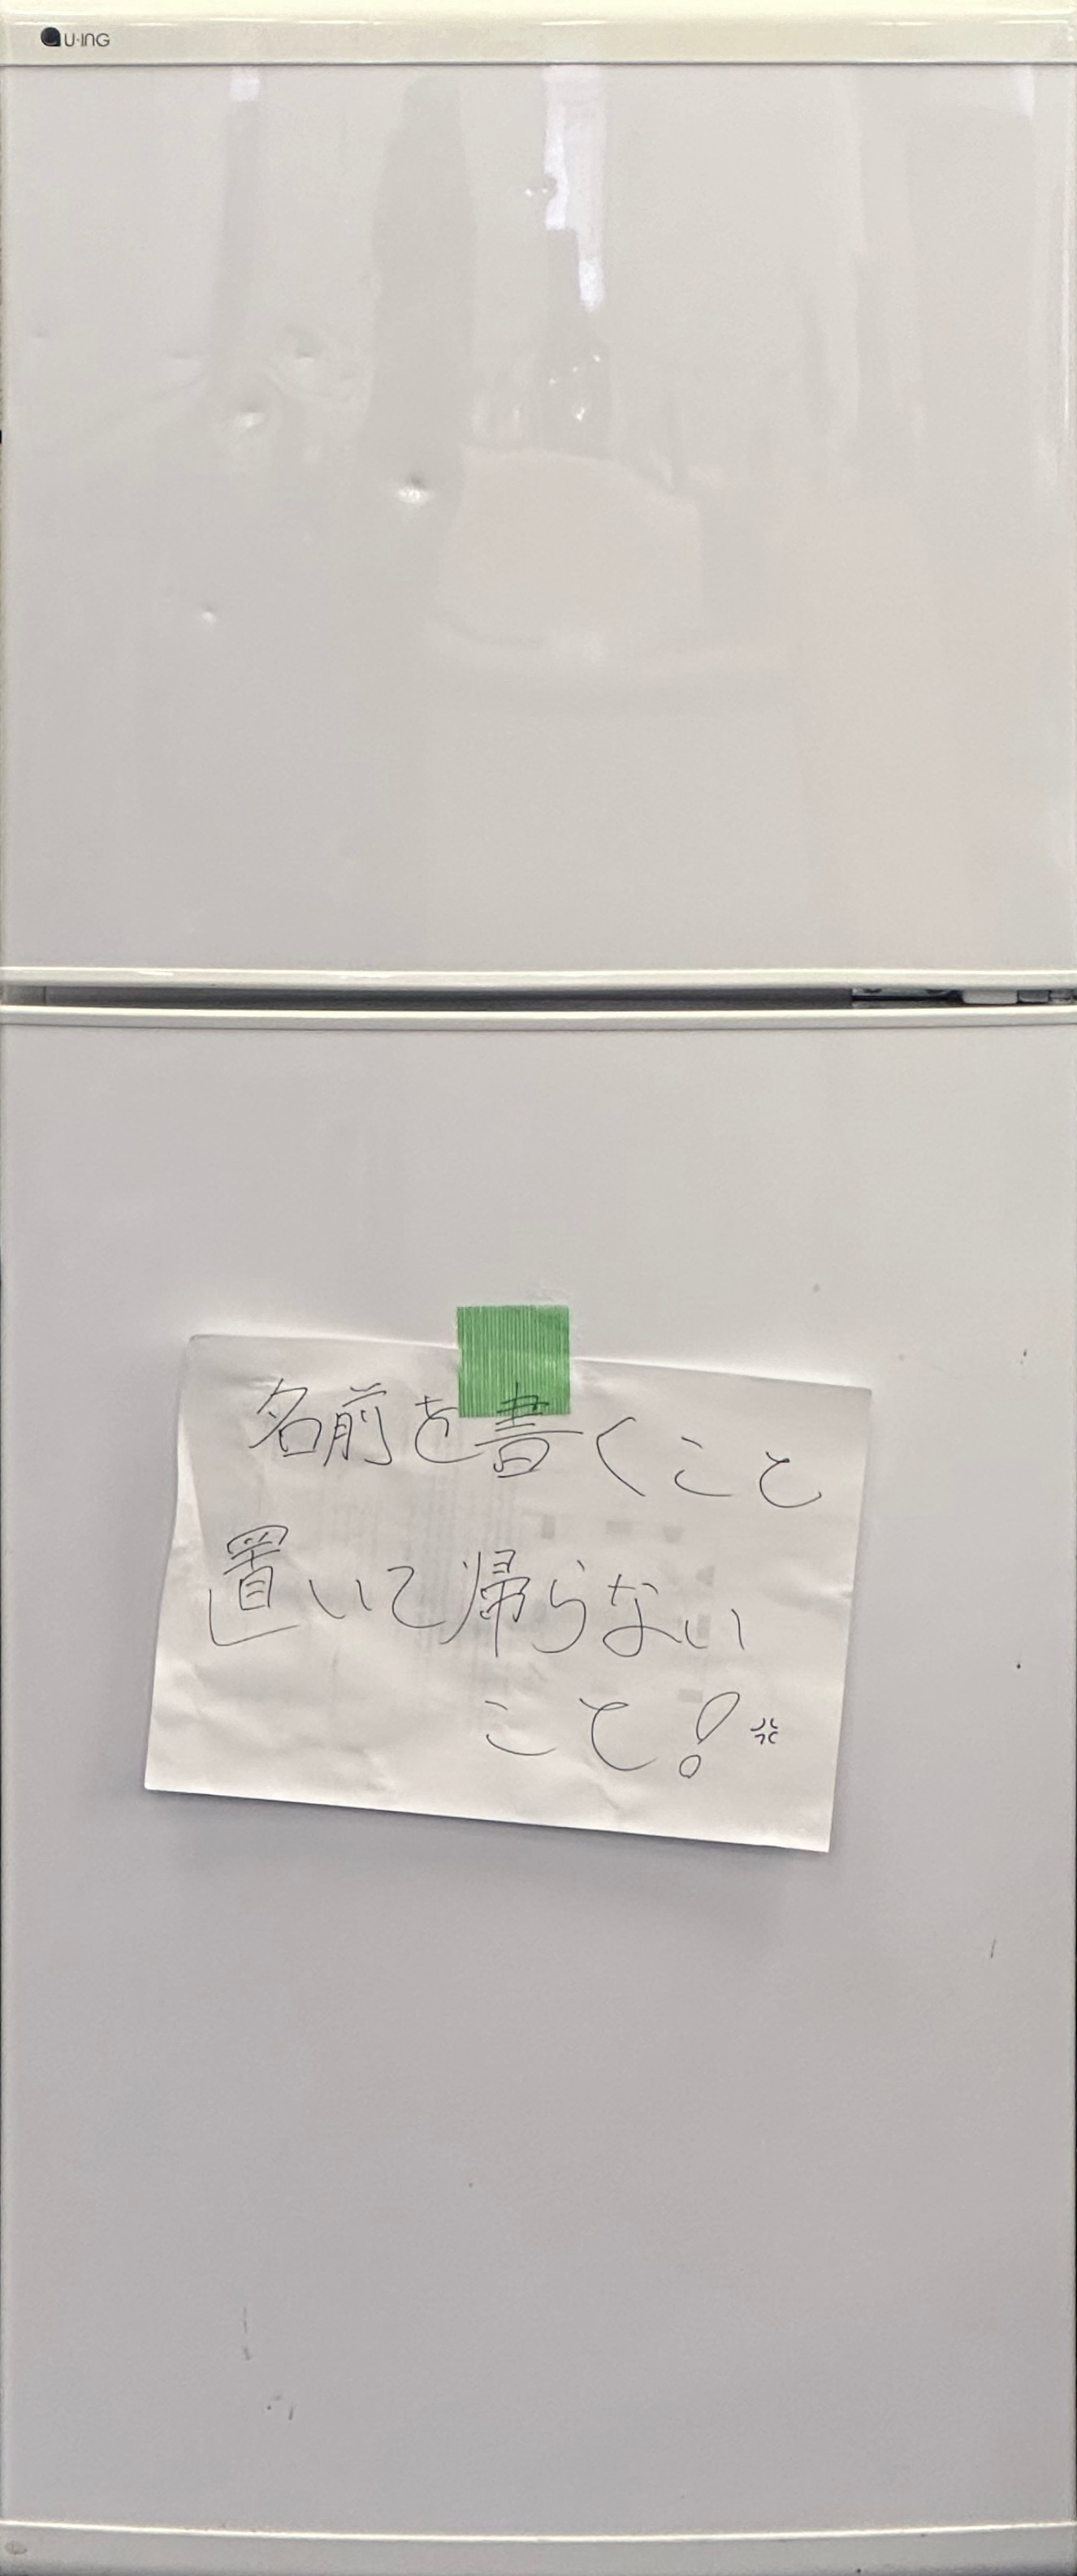 U·ING
名前を書くこと
置いて帰らない
こと!